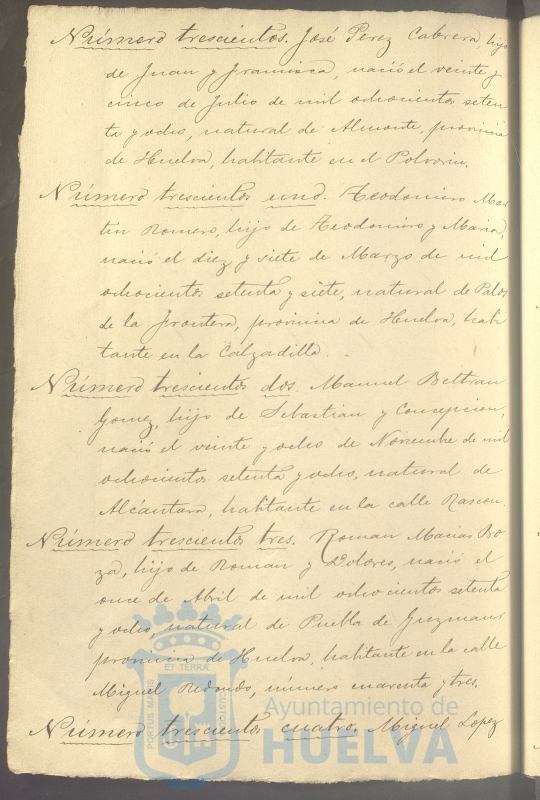 Número trescientos. José Perez Cabrera, hijo
de Juan y Francisca, nació el veinte y
cinco de Julio de mil ochocientos seten
ta y ocho, natural de Almonte, provincia
de Huelva, habitante en el Polvorin.
Número trescientos uno. Teodomiro Mar
tin Romero, hijo de Teodomiro y Maria,
nació el diez y siete de Marzo de mil
ochocientos setenta y siete, natural de Palos
de la Frontera, provincia de Huelva, habi
tante en la Calzadilla.
Número trescientos dos. Manuel Beltran
Gomez, hijo de Sebastian y Concepcion,
nació el veinte y ocho de Noviembre de mil
ochocientos setenta y ocho, natural de
Alcántara, habitante en la calle Rascon.
Número trescientos tres. Roman Macias Bo
za, hijo de Roman y Dolores, nació el
once de Abril de mil ochocientos setenta
y ocho, natural de Puebla de Guzman,
provincia de Huelva, habitante en la calle
Miguel Redondo, número cuarenta y tres.
Número trescientos cuatro. Miguel Lopez
ET TERRÆ
PORTUS MARIS
CUSTODIA
Ayuntamiento de
HUELVA